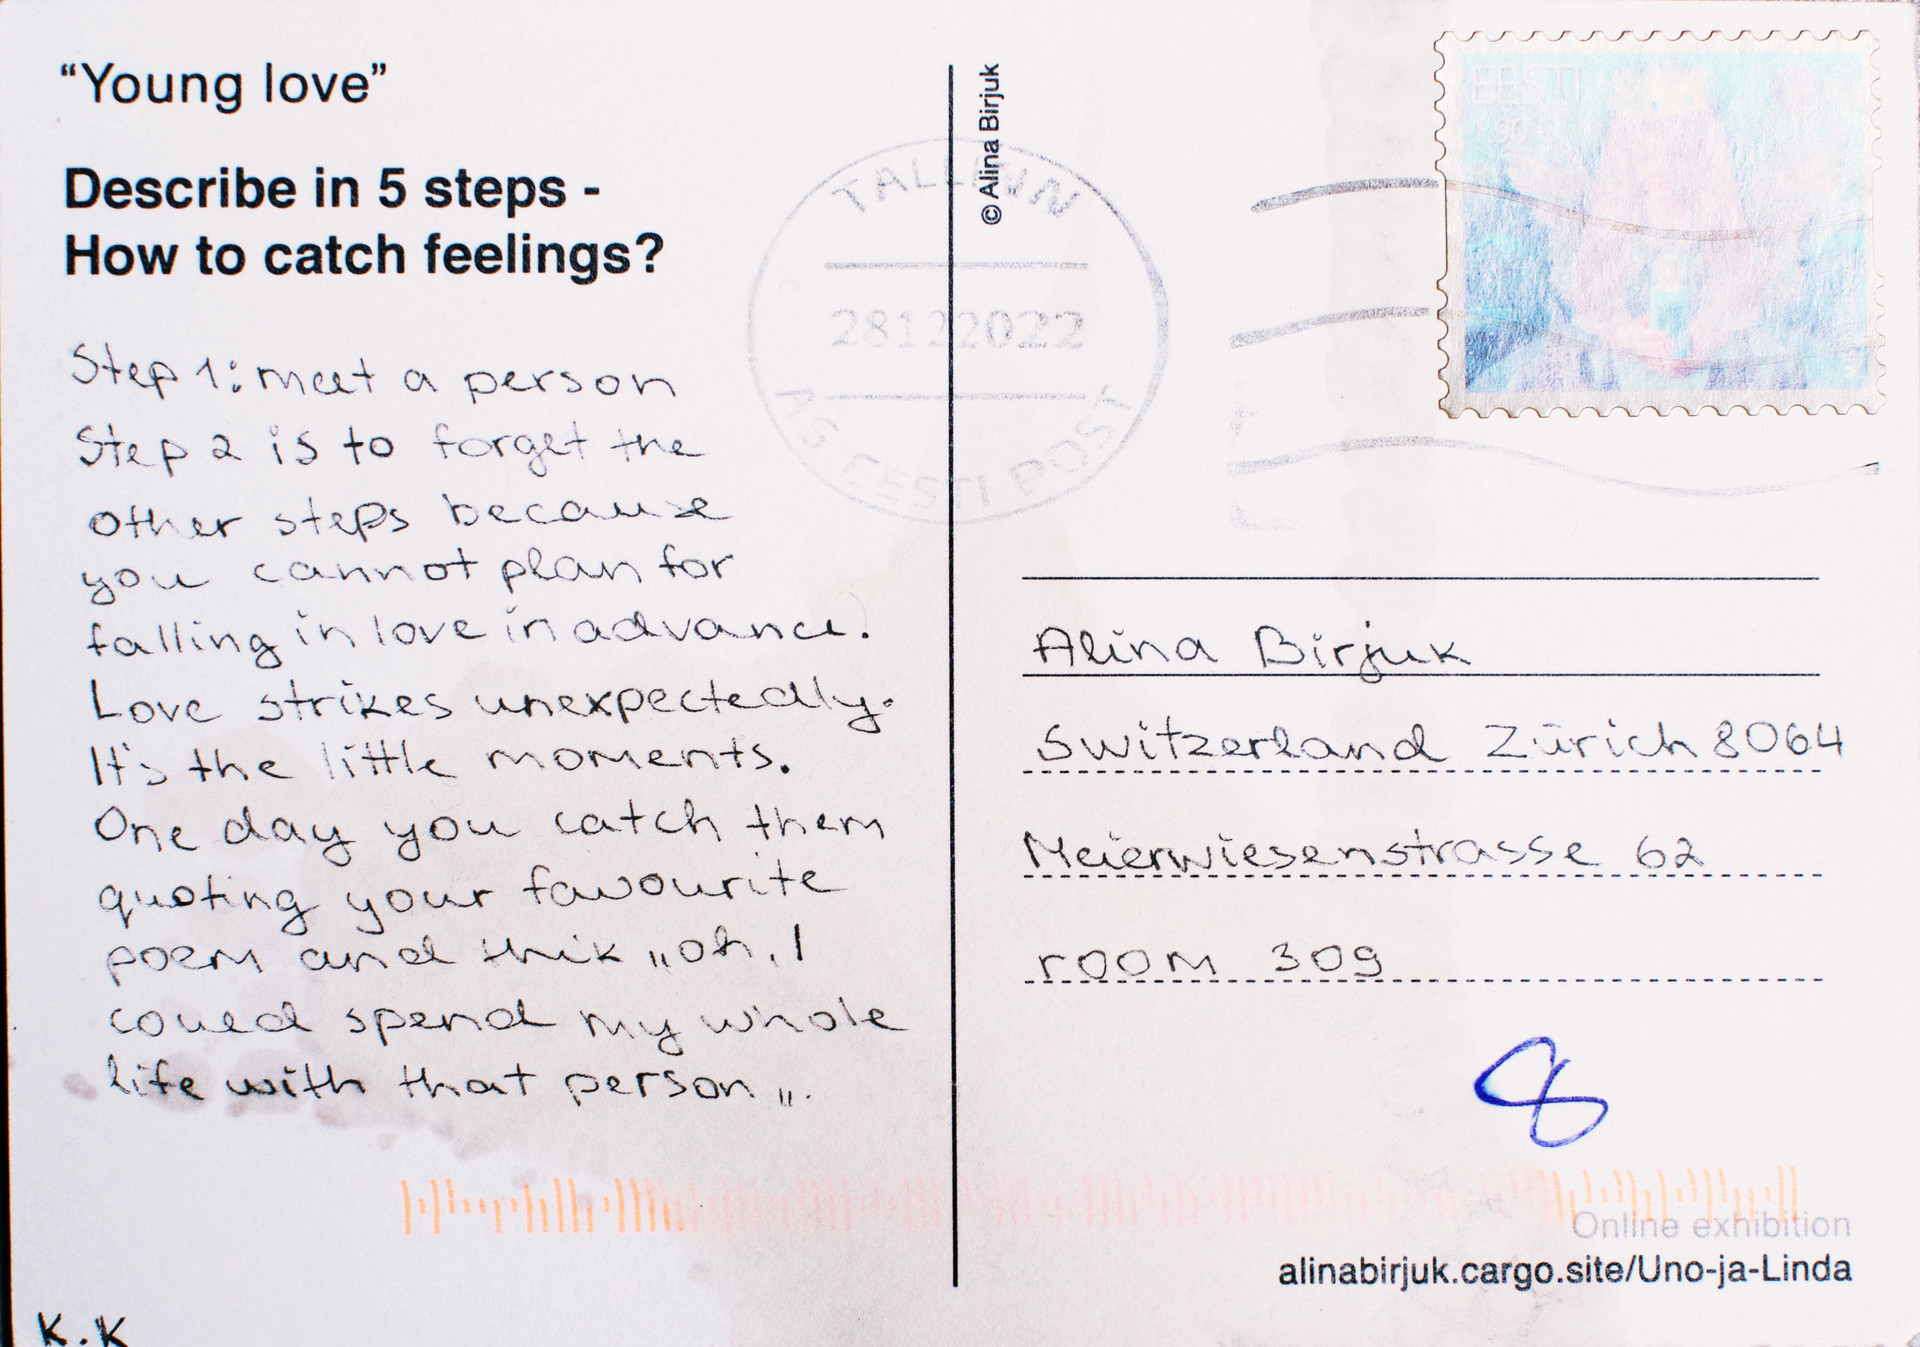 “Young love”
Describe in 5 steps -
How to catch feelings?
Step 1: meet a person
Step 2 is to forget the
other steps because
you cannot plan for
falling in love in advance.
Love strikes unexpectedly.
It's the little moments.
One day you catch them
quoting your favourite
poem and thik „oh, I
could spend my whole
life with that person„.
K.K
© Alina Birjuk
TALLINN
28122022
AS EESTI POST
EESTI
Alina Birjuk
Switzerland Zürich 8064
Meierwiesenstrasse 62
room 309
8
Online exhibition
alinabirjuk.cargo.site/Uno-ja-Linda